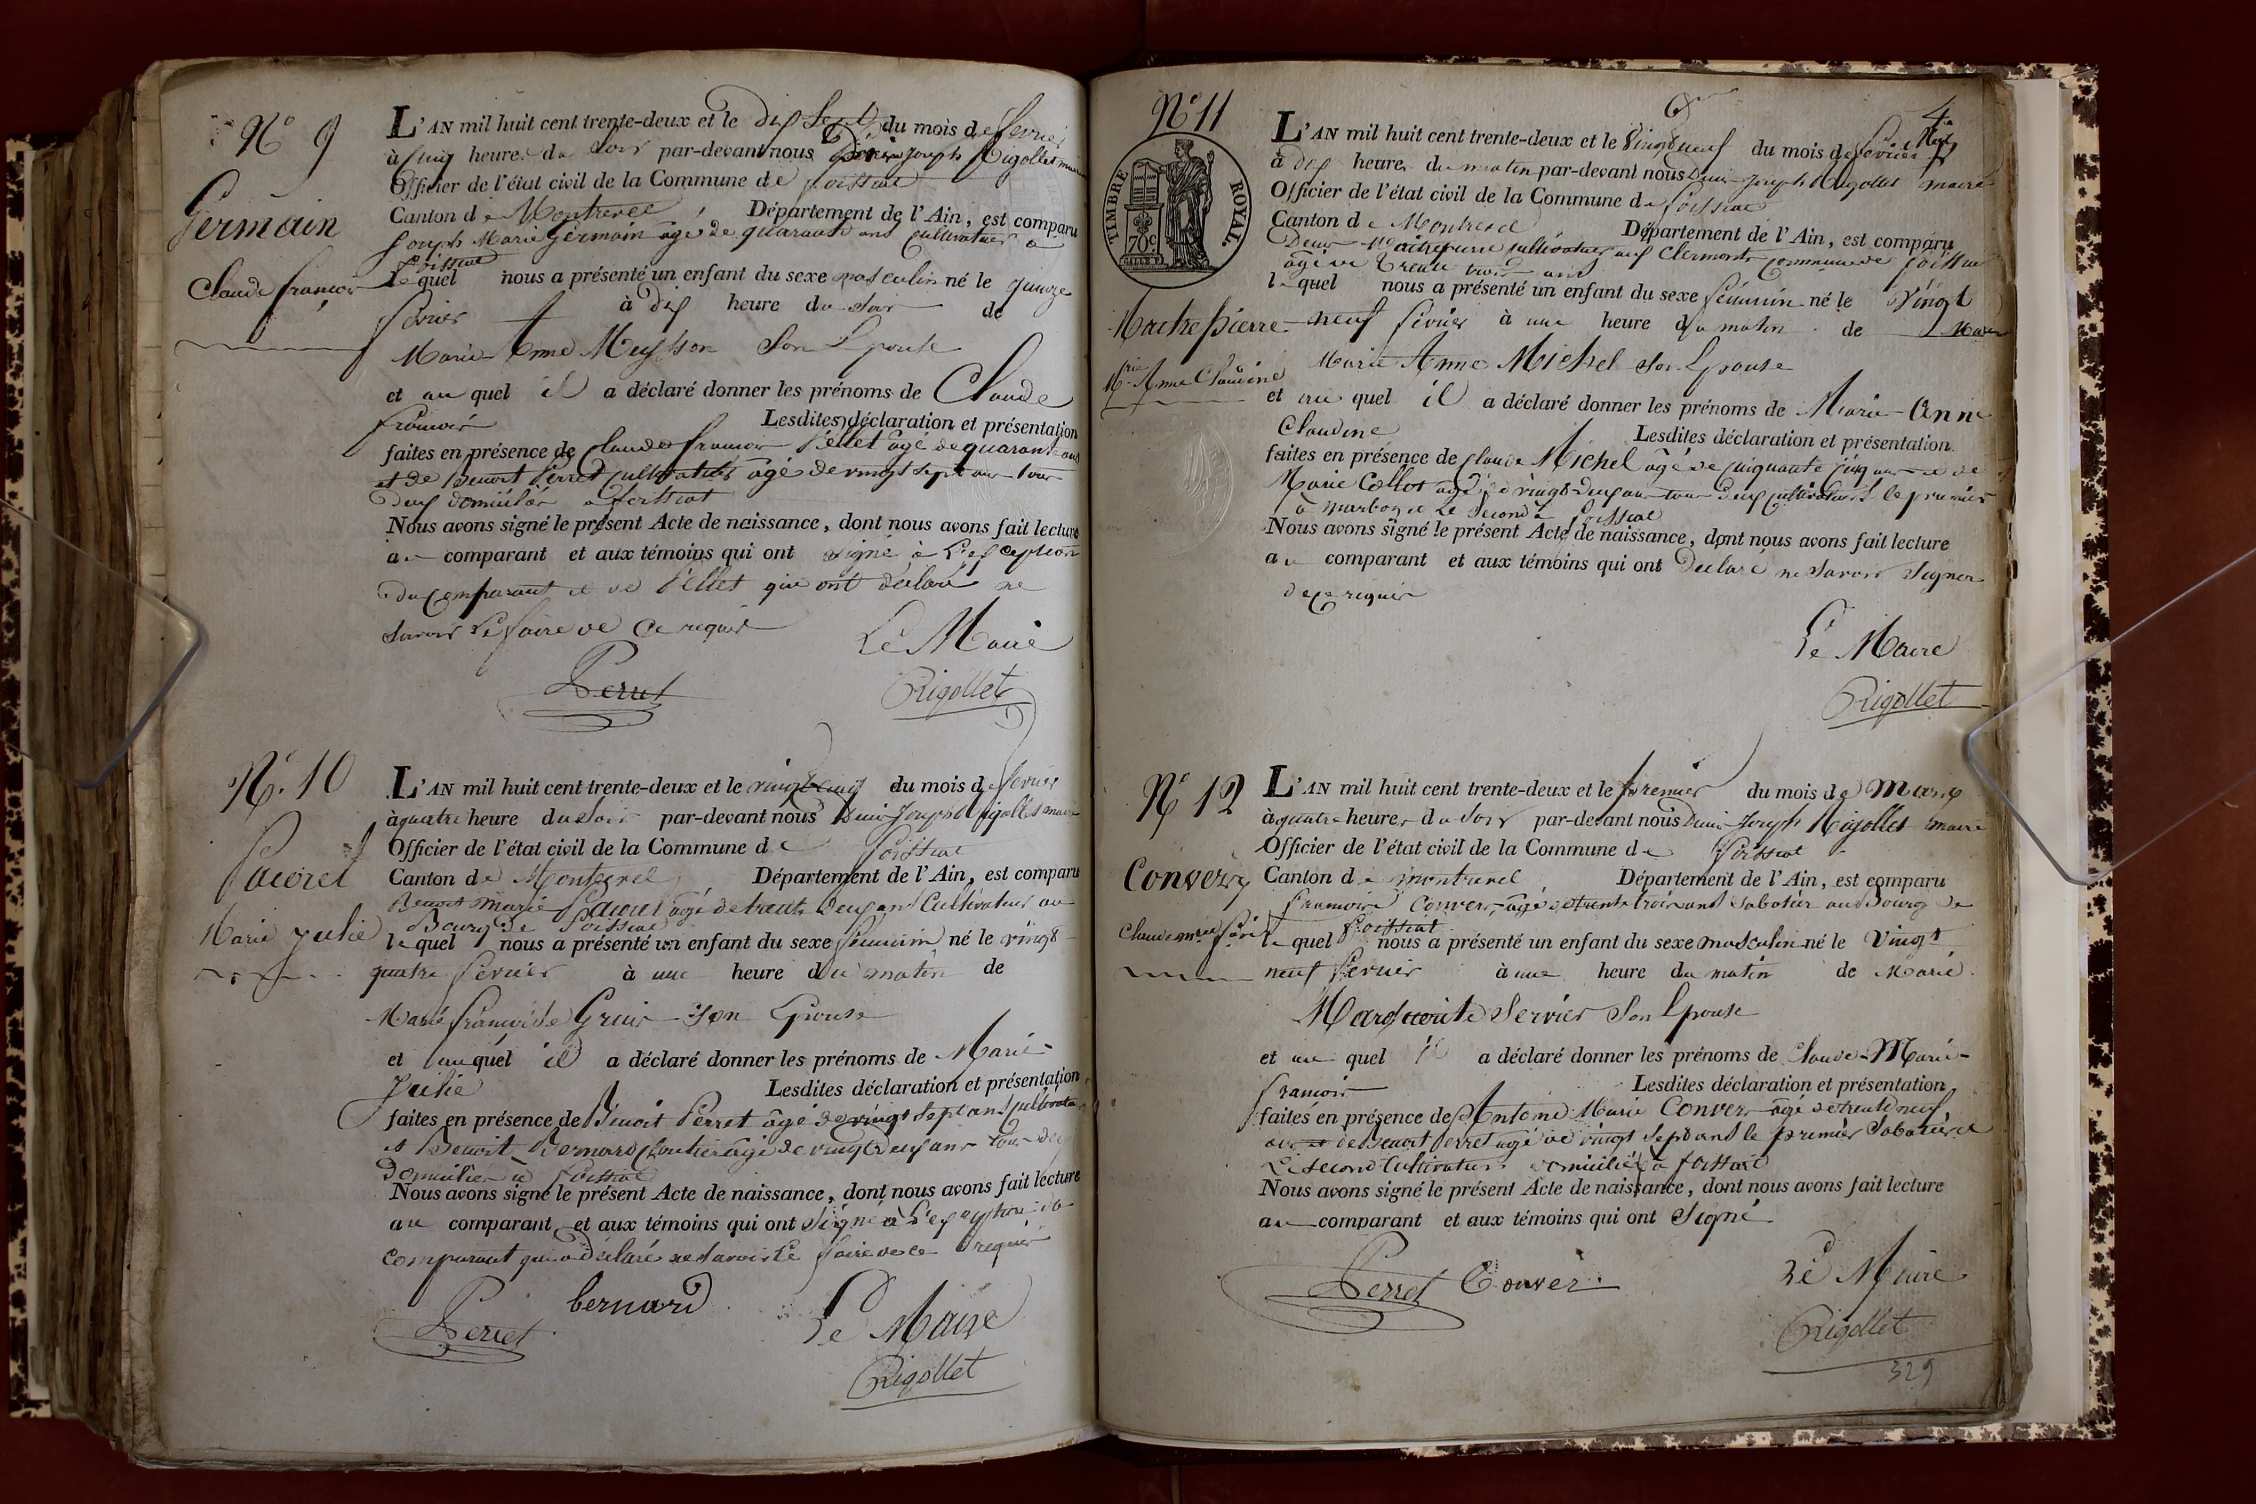 N° 9
Germain
Claude françois
L'AN mil huit cent trente-deux et le dix Sept du mois de fevrier
à cinq heures du Soir par-devant nous Denis Joseph Rigollet maire
Officier de l'état civil de la Commune de foissiat
Canton de Montrevel Département de l'Ain, est comparu
Joseph Marie Germain agé de quarante ans Cultivateur a
foissiat
lequel nous a présenté un enfant du sexe masculin né le quinze
fevrier à dix heure du soir de
Marie Anne Meysson Son Epouse
et au quel il a déclaré donner les prénoms de Claude
francois Lesdites déclaration et présentation
faites en présence de Claude francois Pellet agé de quarante ans
et de Benoit Perret Cultivateur agé de vingt sept ans tous
deux domiciliés a foissiat
Nous avons signé le présent Acte de naissance, dont nous avons fait lecture
au comparant et aux témoins qui ont signé à L'exception
du comparant et de Pellet qui ont déclaré ne
savoir Le faire de Ce requis
Le Maire
Perret Rigollet
N° 10
Pauvret
Marie Julie
L'AN mil huit cent trente-deux et le vingt cinq du mois de fevrier
à quatre heure du Soir par-devant nous Denis Joseph Rigollet maire
Officier de l'état civil de la Commune de foissiat
Canton de Montrevel Département de l'Ain, est comparu
Benoit Marie agé de trente deux ans Cultivateur au
Bourg de foissiat
lequel nous a présenté un enfant du sexe feminin né le vingt
quatre fevrier à une heure du matin de
Marie françoise son Epouse
et auquel il a déclaré donner les prénoms de Marie-
Julie Lesdites déclaration et présentation
faites en présence de Benoit Perret agé de vingt sept ans Cultivateur
et Benoit Bernard agé de vingt deux ans tous deux
Domiciliés à foissiat
Nous avons signé le présent Acte de naissance, dont nous avons fait lecture
au comparant et aux témoins qui ont signé à L'exception du
comparant qui a déclaré ne savoir Le faire de ce requis
bernard Le Maire
Perret Rigollet
N° 11
4e
TIMBRE ROYAL
70c
Maitrepierre
Mrie Anne Claudine
L'AN mil huit cent trente-deux et le Vingt neuf du mois de fevrier
à dix heures du matin par-devant nous Denis Joseph Rigollet maire
Officier de l'état civil de la Commune de foissiat
Canton de Montrevel Département de l'Ain, est comparu
Denis Maitrepierre cultivateur aux Clermonts Commune de foissiat
agé de trente trois ans
lequel nous a présenté un enfant du sexe féminin né le Vingt
neuf fevrier à une heure du matin de
Marie Anne Michel Son Epouse
et au quel il a déclaré donner les prénoms de Marie-Anne
Claudine Lesdites déclaration et présentation
faites en présence de Claude Michel agé de cinquante cinq ans et de
Marie Collot agé de vingt deux ans tous deux cultivateurs le premier
à marboz et Le second à foissiat
Nous avons signé le présent Acte de naissance, dont nous avons fait lecture
au comparant et aux témoins qui ont Declaré ne savoir signer
de ce requis
Le Maire
Rigollet
N° 12
Convers
Claude mrie fçois
L'AN mil huit cent trente-deux et le premier du mois de Mars
à quatre heures du Soir par-devant nous Denis Joseph Rigollet maire
Officier de l'état civil de la Commune de foissiat
Canton de montrevel Département de l'Ain, est comparu
francois Convers agé de trente trois ans Sabotier au Bourg de
foissiat
lequel nous a présenté un enfant du sexe masculin né le Vingt
neuf fevrier à une heure du matin de Marie
Margueritte Servier Son Epouse
et au quel il a déclaré donner les prénoms de Claude-Marie-
francois Lesdites déclaration et présentation
faites en présence de Antoine Marie Convers agé de trente neuf
ans et de Benoit Perret agé de vingt sept ans le premier Sabotier et
Le second Cultivateur domiciliés à foissiat
Nous avons signé le présent Acte de naissance, dont nous avons fait lecture
au comparant et aux témoins qui ont Signé
Perret Conver Le Maire
Rigollet
329